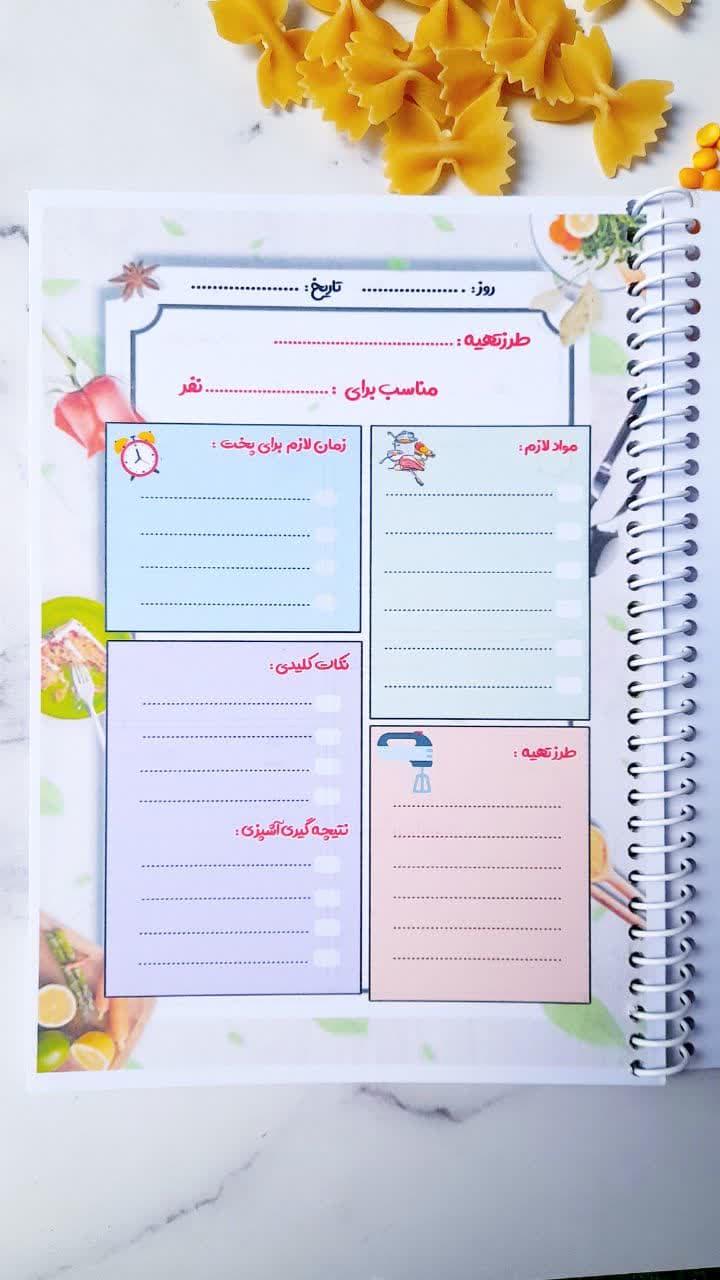 روز: .................... تاریخ: ....................
طرز تهیه: ......................................
مناسب برای : .......................... نفر
مواد لازم:
زمان لازم برای پخت :
نکات کلیدی:
طرز تهیه :
نتیجه گیری آشپزی: